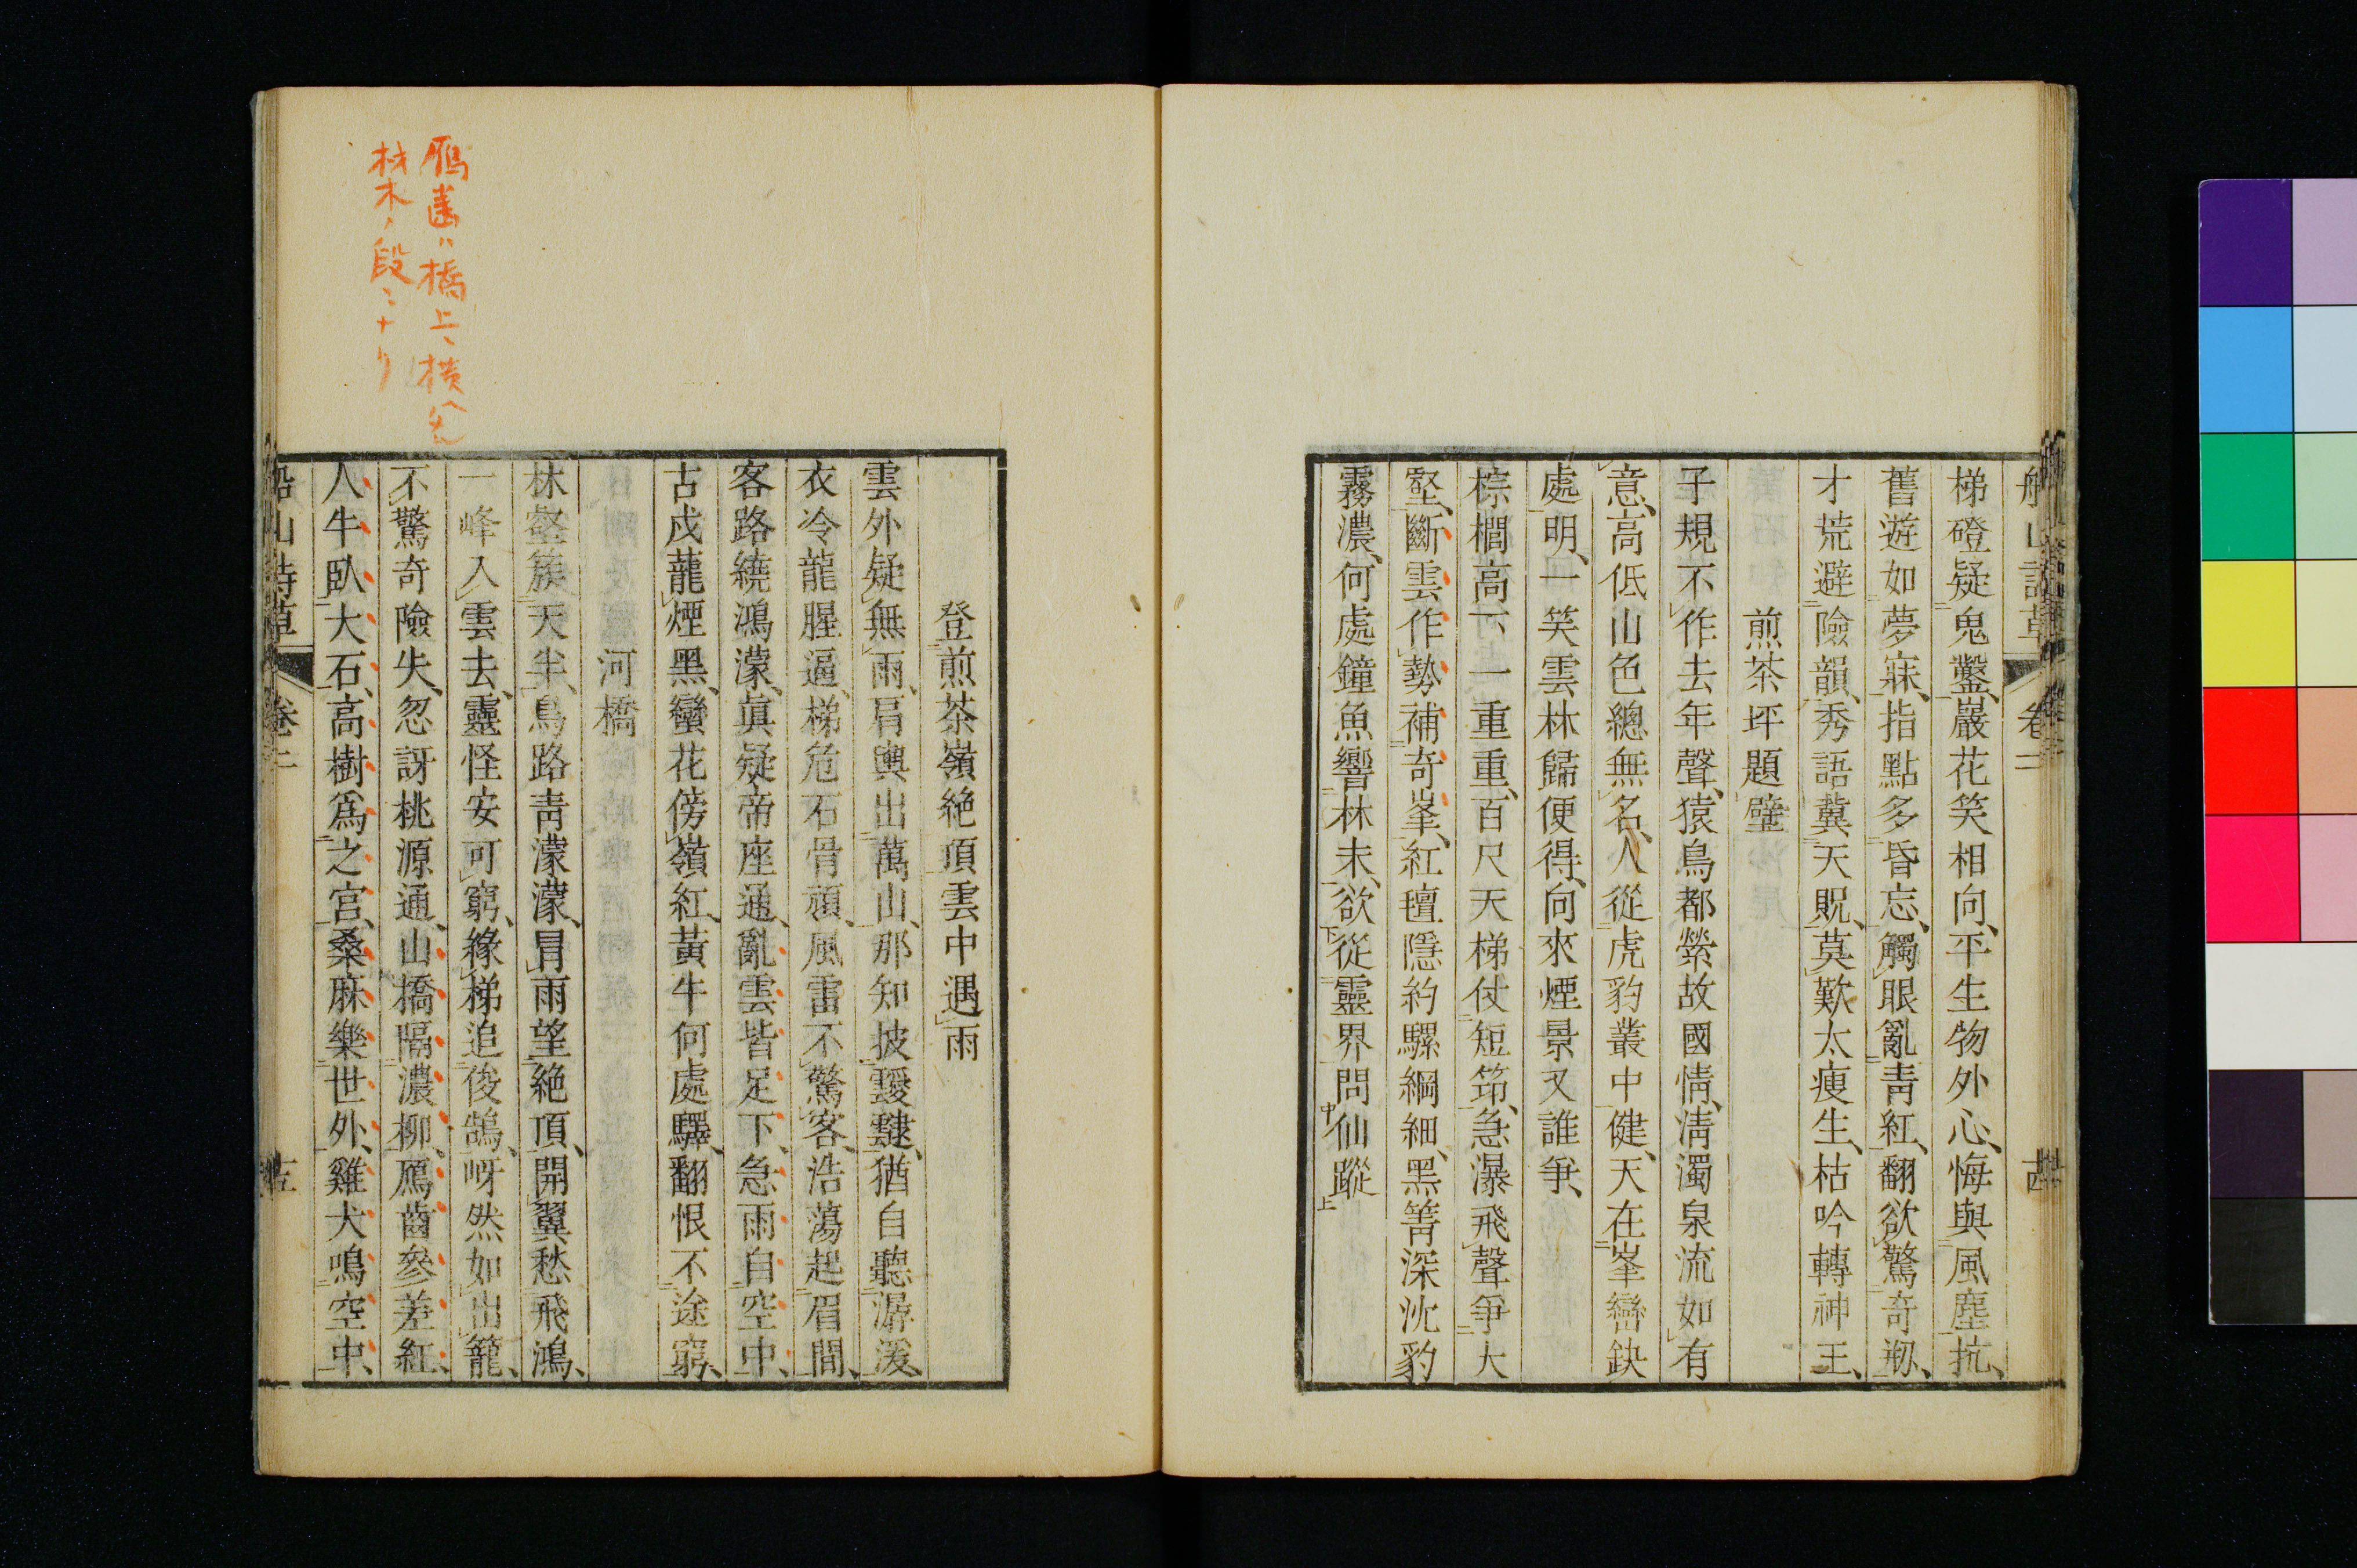 船山詩草 卷二 廿四
梯磴疑鬼鑿、巖花笑相向、平生物外心、悔與風塵抗、
舊遊如夢寐、指點多昏忘、觸眼亂靑紅、翻欲驚奇剏、
才荒避險韻、秀語冀天貺、莫歎太瘦生、枯吟轉神王、
煎茶坪題壁
子規不作去年聲、猿鳥都縈故國情、淸濁泉流如有
意、高低山色總無名、人從虎豹叢中健、天在峯巒缺
處明、一笑雲林歸便得、向來煙景又誰爭、
棕櫚高下一重重、百尺天梯仗短笻、急瀑飛聲爭大
壑、斷雲作勢補奇峯、紅氊隱約騾綱細、黑箐深沈豹
霧濃、何處鐘魚響林末、欲從靈界問仙蹤
登煎茶嶺絶頂雲中遇雨
雲外疑無雨、肩輿出萬山、那知披靉靆、猶自聽潺湲、
衣冷龍腥逼、梯危石骨頑、風雷不驚客、浩蕩起眉間、
客路繞鴻濛、眞疑帝座通、亂雲皆足下、急雨自空中、
古戍蘢煙黑、蠻花傍嶺紅、黃牛何處驛、翻恨不途窮、
河橋
林壑簇天半、鳥路靑濛濛、冐雨望絶頂、開翼愁飛鴻、
一峰入雲去、靈怪安可窮、緣梯追俊鶻、呀然如出籠、
不驚奇險失、忽訝桃源通、山橋隔濃柳、鴈齒參差紅、
人牛臥大石、高樹爲之宮、桑麻樂世外、雞犬鳴空中、
船山詩草 卷二 廿五
雁歯ハ橋上ニ横
材木ノ段ニナリ